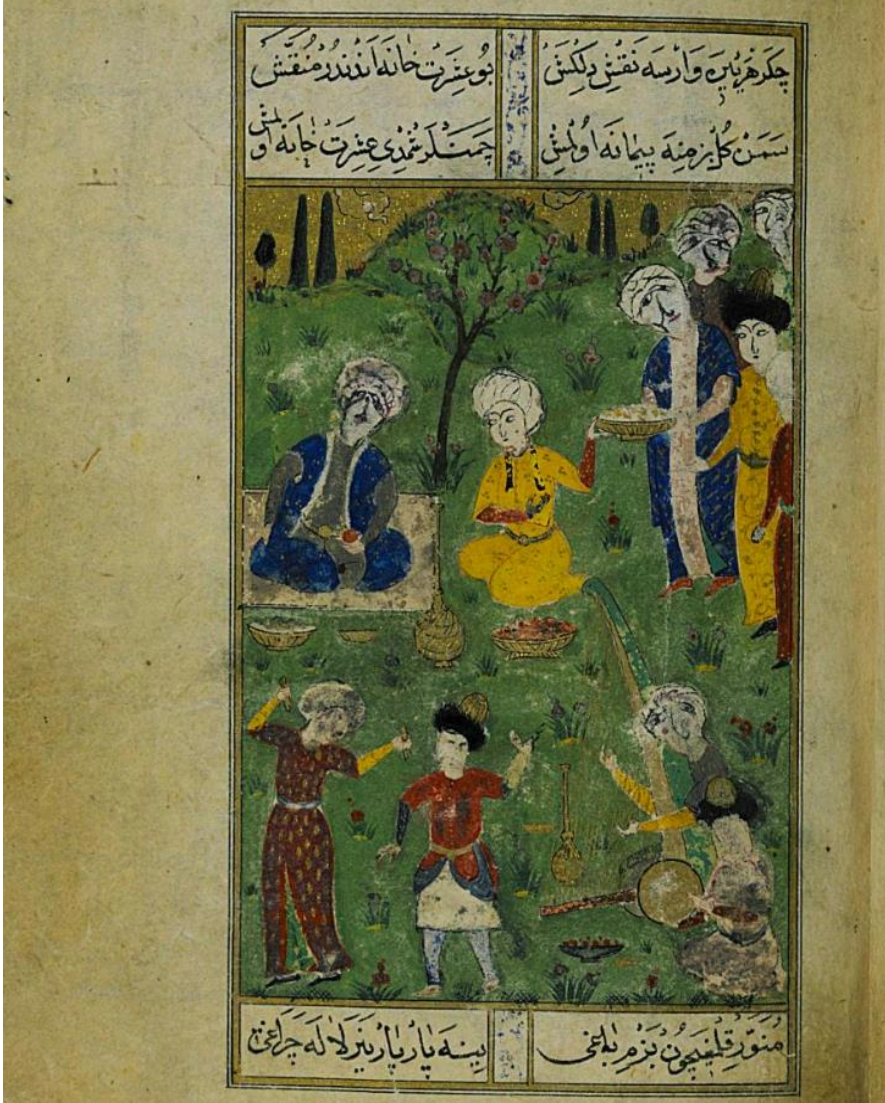 چكر هر ييره وارسه نقش دلكش بو عشرت خانه اندندر منقش
سمن كل بزمنه پيمانه اولمش چمنلر شمدى عشرت خانه اولمش
منور قلمغيچون بزم باغى يينه پار پار ينر لاله چراغى